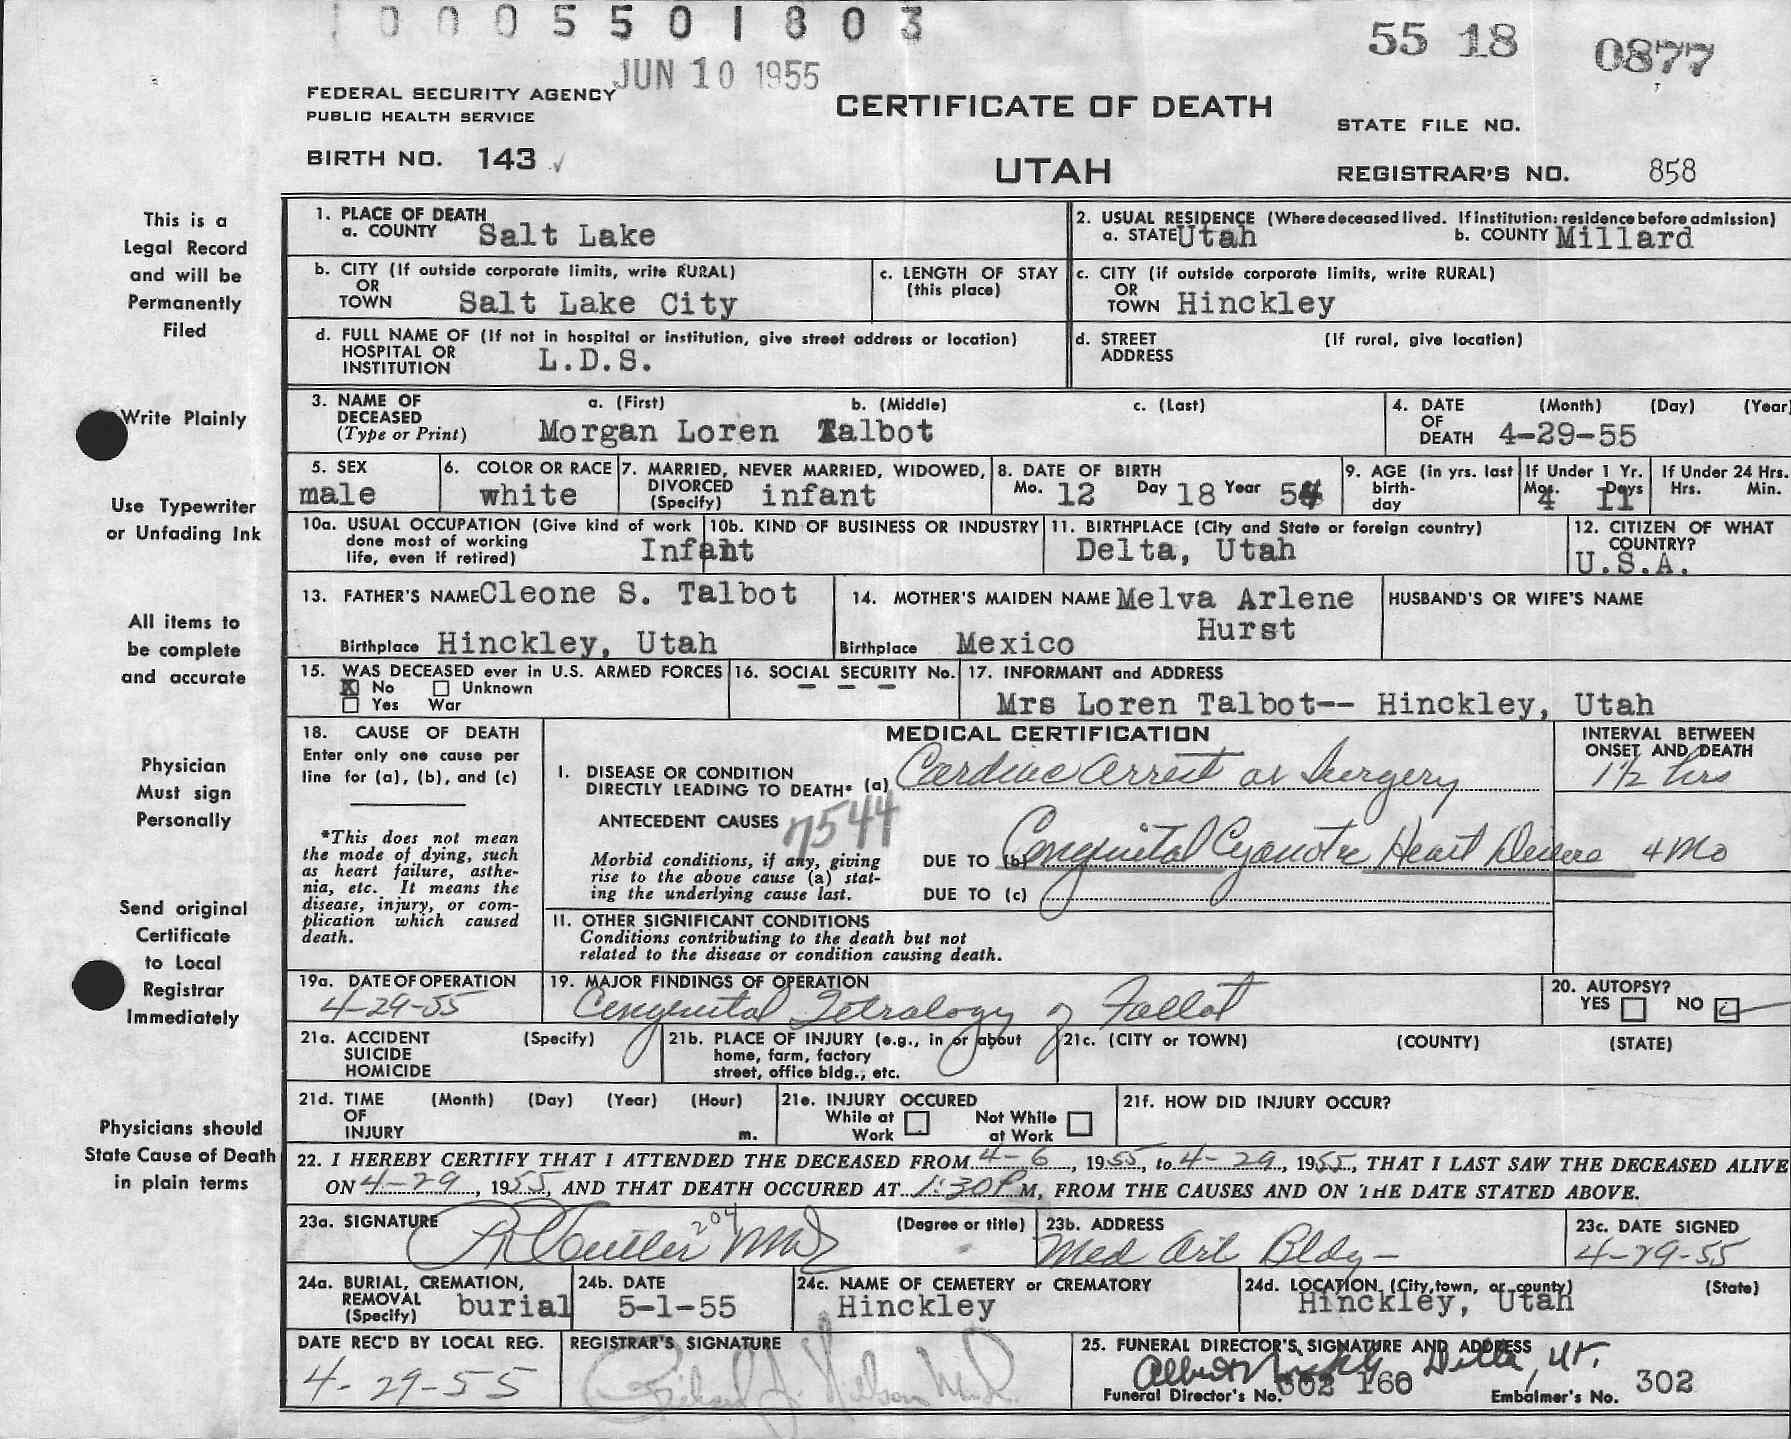 0 0 0 5 5 0 1 8 0 3
55 18 0877
JUN 10 1955
FEDERAL SECURITY AGENCY
PUBLIC HEALTH SERVICE
CERTIFICATE OF DEATH
STATE FILE NO.
BIRTH NO. 143
UTAH
REGISTRAR'S NO. 858
This is a
Legal Record
and will be
Permanently
Filed
Write Plainly
Use Typewriter
or Unfading Ink
All items to
be complete
and accurate
Physician
Must sign
Personally
Send original
Certificate
to Local
Registrar
Immediately
Physicians should
State Cause of Death
in plain terms
1. PLACE OF DEATH
a. COUNTY Salt Lake
2. USUAL RESIDENCE (Where deceased lived. If institution: residence before admission)
a. STATE Utah b. COUNTY Millard
b. CITY (If outside corporate limits, write RURAL)
OR
TOWN Salt Lake City
c. LENGTH OF STAY
(this place)
c. CITY (if outside corporate limits, write RURAL)
OR
TOWN Hinckley
d. FULL NAME OF (If not in hospital or institution, give street address or location)
HOSPITAL OR
INSTITUTION L.D.S.
d. STREET (If rural, give location)
ADDRESS
3. NAME OF DECEASED (Type or Print)
a. (First) b. (Middle) c. (Last)
Morgan Loren Talbot
4. DATE OF DEATH (Month) (Day) (Year)
4-29-55
5. SEX
male
6. COLOR OR RACE
white
7. MARRIED, NEVER MARRIED, WIDOWED,
DIVORCED
(Specify) infant
8. DATE OF BIRTH
Mo. 12 Day 18 Year 54
9. AGE (in yrs. last
birth-
day
If Under 1 Yr.
Mos. 4 Days 11
If Under 24 Hrs.
Hrs. Min.
10a. USUAL OCCUPATION (Give kind of work
done most of working
life, even if retired)
10b. KIND OF BUSINESS OR INDUSTRY
Infant
11. BIRTHPLACE (City and State or foreign country)
Delta, Utah
12. CITIZEN OF WHAT
COUNTRY?
U.S.A.
13. FATHER'S NAME Cleone S. Talbot
Birthplace Hinckley, Utah
14. MOTHER'S MAIDEN NAME Melva Arlene
Hurst
Birthplace Mexico
HUSBAND'S OR WIFE'S NAME
15. WAS DECEASED ever in U.S. ARMED FORCES
X No Unknown
Yes War
16. SOCIAL SECURITY No.
- - -
17. INFORMANT and ADDRESS
Mrs Loren Talbot-- Hinckley, Utah
18. CAUSE OF DEATH
Enter only one cause per
line for (a), (b), and (c)
*This does not mean
the mode of dying, such
as heart failure, asthe-
nia, etc. It means the
disease, injury, or com-
plication which caused
death.
MEDICAL CERTIFICATION
INTERVAL BETWEEN
ONSET AND DEATH
I. DISEASE OR CONDITION
DIRECTLY LEADING TO DEATH* (a) Cardiac Arrest at Surgery 1½ hrs
ANTECEDENT CAUSES 7544
Morbid conditions, if any, giving
rise to the above cause (a) stat-
ing the underlying cause last.
DUE TO (b) Congenital Cyanotic Heart Disease 4 Mo
DUE TO (c)
II. OTHER SIGNIFICANT CONDITIONS
Conditions contributing to the death but not
related to the disease or condition causing death.
19a. DATE OF OPERATION
4-29-55
19. MAJOR FINDINGS OF OPERATION
Congenital Tetralogy of Fallot
20. AUTOPSY?
YES NO
21a. ACCIDENT (Specify)
SUICIDE
HOMICIDE
21b. PLACE OF INJURY (e.g., in or about
home, farm, factory
street, office bldg., etc.
21c. (CITY or TOWN) (COUNTY) (STATE)
21d. TIME (Month) (Day) (Year) (Hour)
OF
INJURY m.
21e. INJURY OCCURED
While at Work Not While at Work
21f. HOW DID INJURY OCCUR?
22. I HEREBY CERTIFY THAT I ATTENDED THE DECEASED FROM 4-6, 1955, to 4-29, 1955, THAT I LAST SAW THE DECEASED ALIVE
ON 4-29, 1955, AND THAT DEATH OCCURED AT 1:30 P M, FROM THE CAUSES AND ON THE DATE STATED ABOVE.
23a. SIGNATURE (Degree or title)
204 MD
23b. ADDRESS
Med Art Bldg -
23c. DATE SIGNED
4-29-55
24a. BURIAL, CREMATION,
REMOVAL
(Specify) burial
24b. DATE
5-1-55
24c. NAME OF CEMETERY or CREMATORY
Hinckley
24d. LOCATION (City, town, or county) (State)
Hinckley, Utah
DATE REC'D BY LOCAL REG.
4-29-55
REGISTRAR'S SIGNATURE
25. FUNERAL DIRECTOR'S SIGNATURE AND ADDRESS
Delta, Ut.
Funeral Director's No. 302 160 Embalmer's No. 302